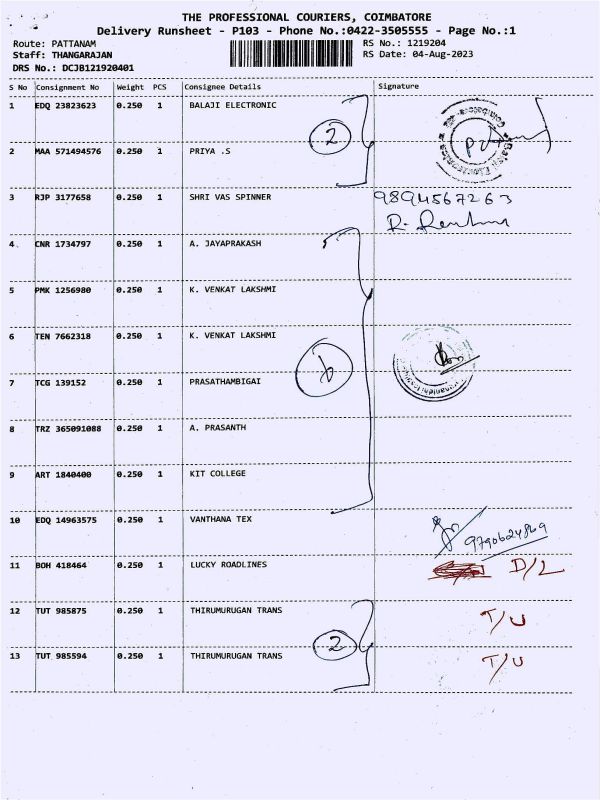 THE PROFESSIONAL COURIERS, COIMBATORE
Delivery Runsheet - P103 - Phone No.:0422-3505555 - Page No.:1
Route: PATTANAM RS No.: 1219204
Staff: THANGARAJAN RS Date: 04-Aug-2023
DRS No.: DCJB121920401
S No Consignment No Weight PCS Consignee Details Signature
1 EDQ 23823623 0.250 1 BALAJI ELECTRONIC
2
2 MAA 571494576 0.250 1 PRIYA .S
3 RJP 3177658 0.250 1 SHRI VAS SPINNER 9894567263
4. CNR 1734797 0.250 1 A. JAYAPRAKASH
5 PMK 1256980 0.250 1 K. VENKAT LAKSHMI
6 TEN 7662318 0.250 1 K. VENKAT LAKSHMI
7 TCG 139152 0.250 1 PRASATHAMBIGAI
8 TRZ 365091088 0.250 1 A. PRASANTH
9 ART 1840400 0.250 1 KIT COLLEGE
10 EDQ 14963575 0.250 1 VANTHANA TEX
11 BOH 418464 0.250 1 LUCKY ROADLINES D/L
12 TUT 985875 0.250 1 THIRUMURUGAN TRANS T/U
2
13 TUT 985594 0.250 1 THIRUMURUGAN TRANS T/U